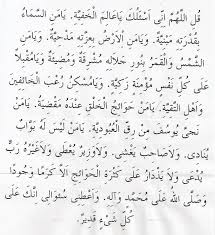 قُلِ اللّٰهُمَّ إِنِّي أَسْئَلُكَ يَاعَالِمَ الْخَفِيَّةِ. وَيَامَنِ السَّمَاءُ
بِقُدْرَتِهِ مَبْنِيَّةٌ. وَيَامَنِ الْأَرْضُ بِعِزَّتِهِ مَدْحِيَّةٌ. وَيَامَنِ
الشَّمْسُ وَالْقَمَرُ بِنُورِ جَلَالِهِ مُشْرِقَةٌ وَمُضِيئَةٌ. وَيَامُقْبِلًا
عَلَى كُلِّ نَفْسٍ مُؤْمِنَةٍ زَكِيَّةٍ. وَيَامُسَكِّنَ رُعْبِ الْخَائِفِينَ
وَأَهْلِ التَّقِيَّةِ. يَامَنْ حَوَائِجُ الْخَلْقِ عِنْدَهُ مَقْضِيَّةٌ. يَامَنْ
نَجَّى يُوسُفَ مِنْ رِقِّ الْعُبُودِيَّةِ. يَامَنْ لَيْسَ لَهُ بَوَّابٌ
يُنَادَى. وَلَاصَاحِبٌ يَغْشَى. وَلَاوَزِيرٌ يُعْطَى وَلَاغَيْرُهُ رَبٌّ
يُدْعَى. وَلَا يَزْدَادُ عَلَى كَثْرَةِ الْحَوَائِجِ اِلَّا كَرَمًا وَجُودًا
وَصَلَّى اللهُ عَلَى مُحَمَّدٍ وَآلِهِ. وَأَعْطِنِي سُؤَالِي اِنَّكَ عَلَى
كُلِّ شَيْءٍ قَدِيرٌ.